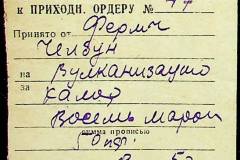 К ПРИХОДН. ОРДЕРУ №
Принято от Ферми
Челбун
на Вулканизацию
калош
Восемь марок
сумма прописью
50 пф.